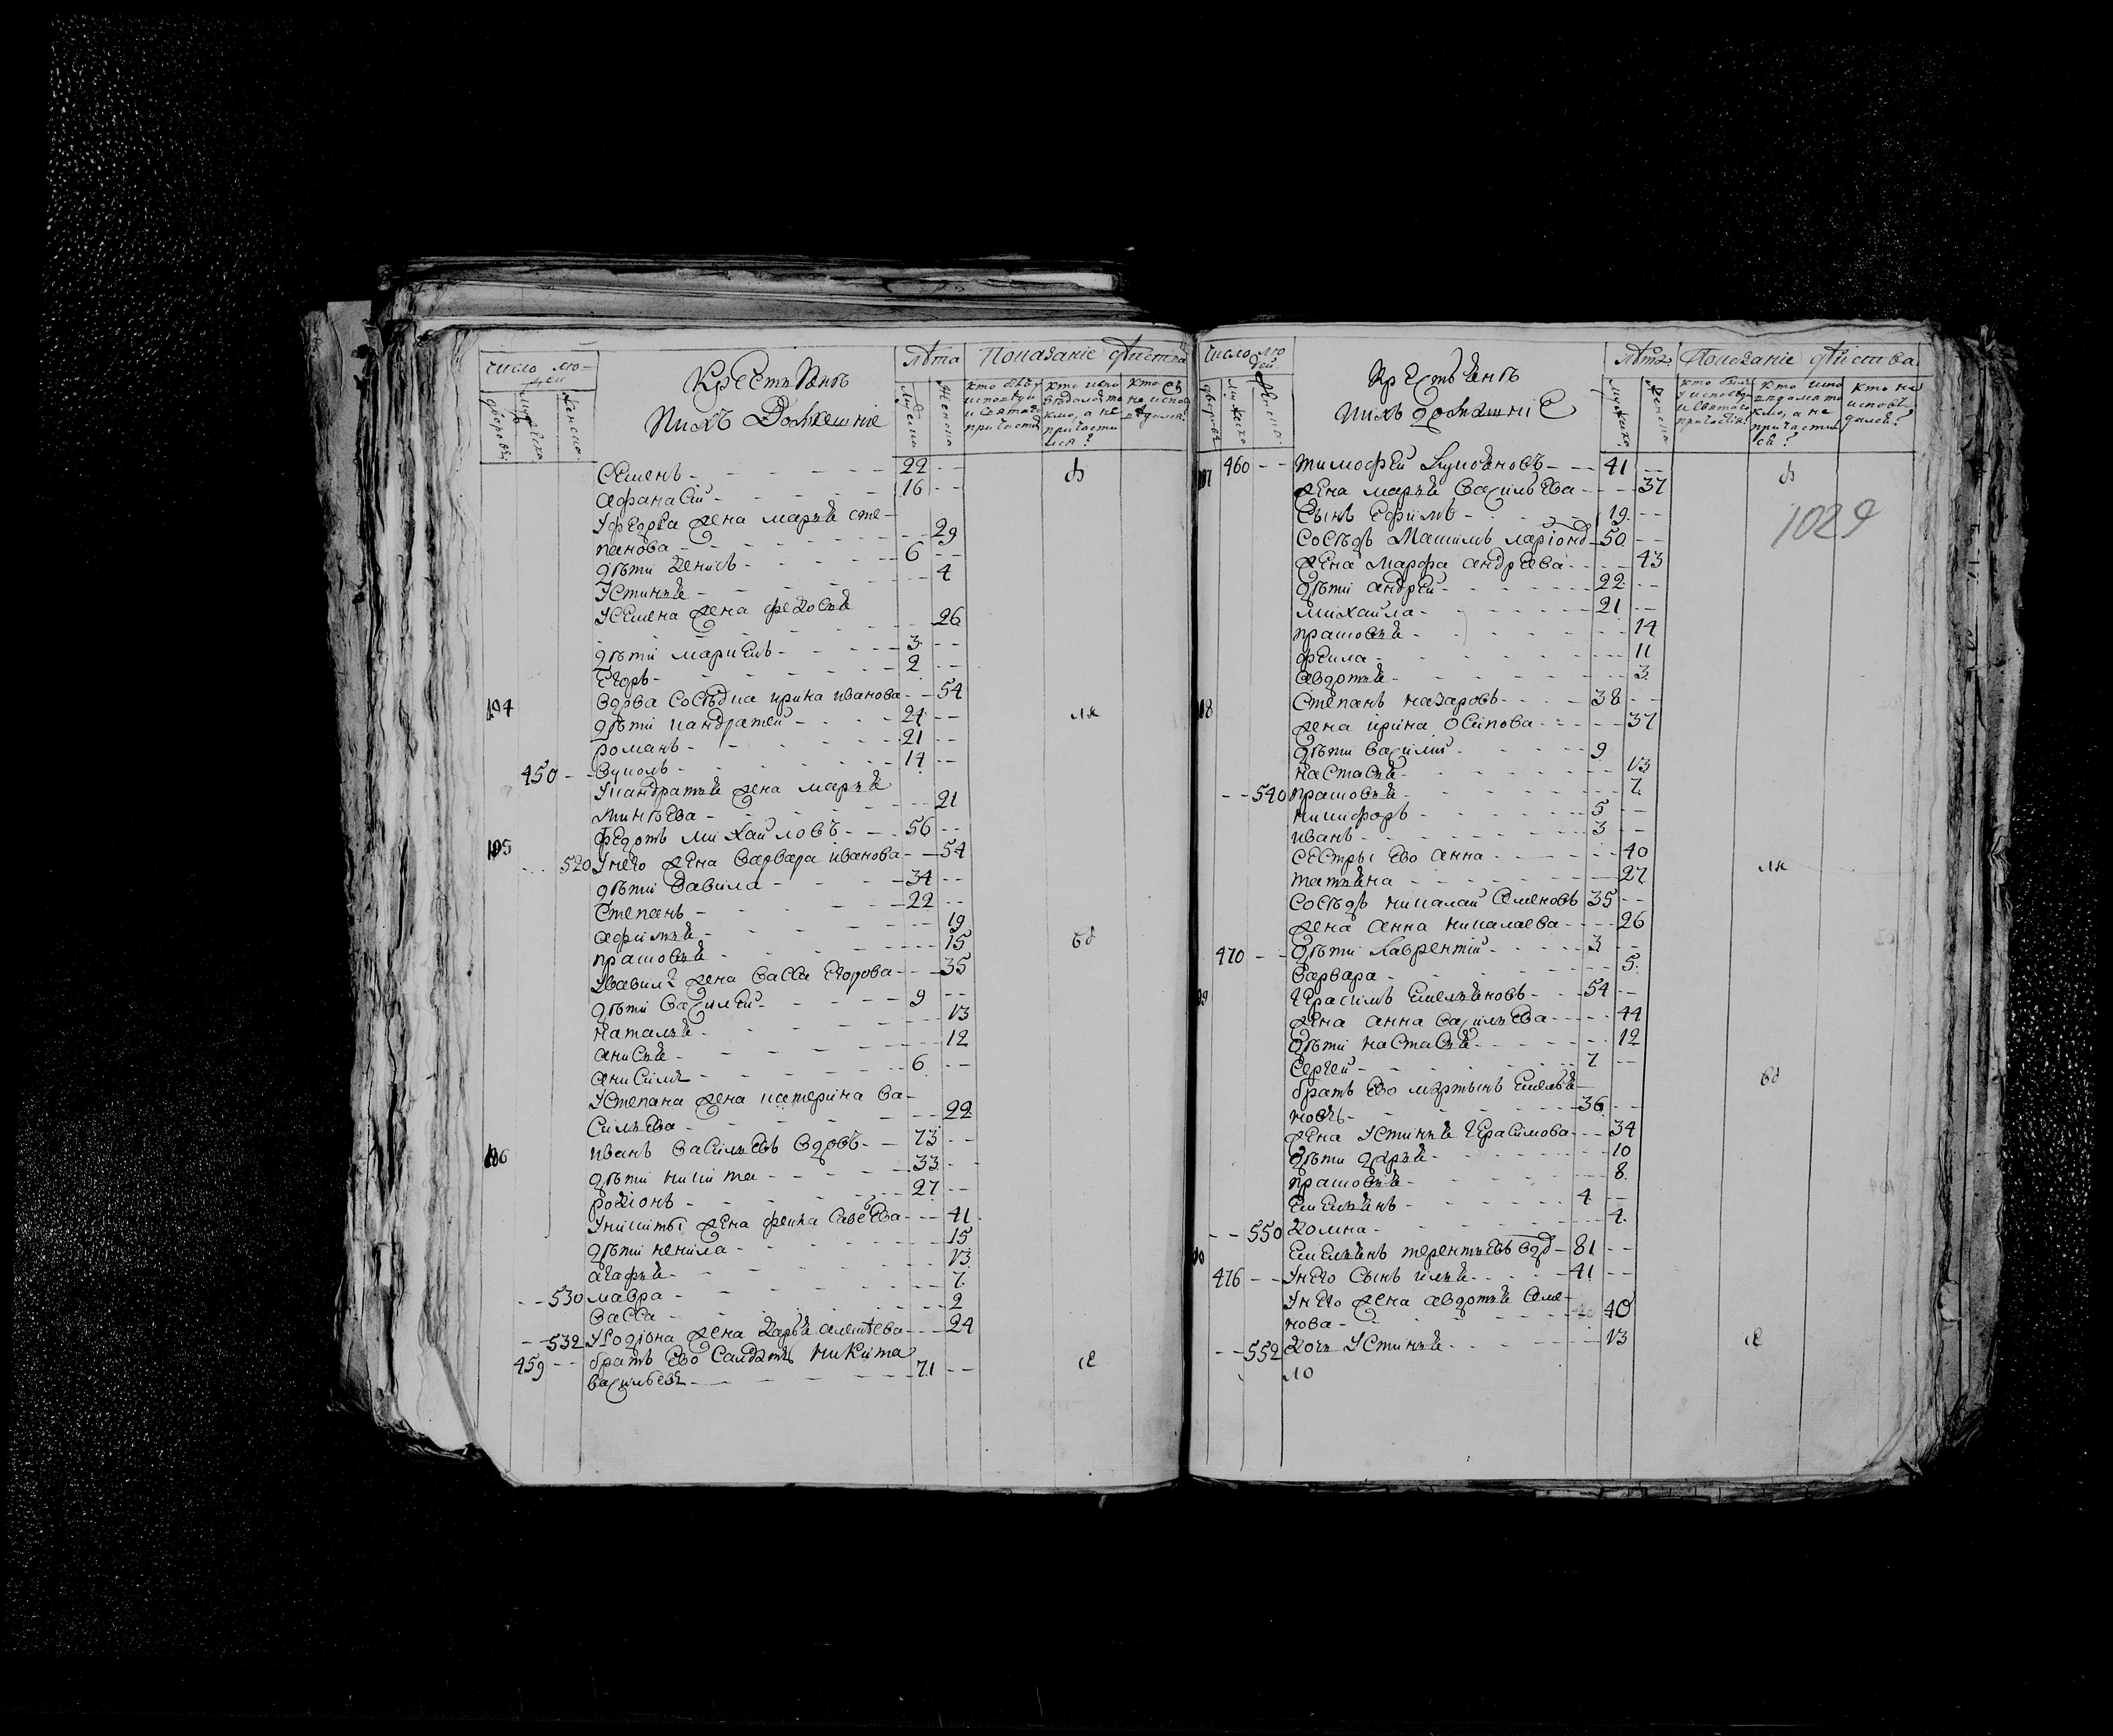 число лю-
дей
дворовъ
мужеска
женска
Крестьянъ
ихъ Домашніе
лѣта
мужеска
женска
Показаніе дѣйства
кто былъ у исповѣди и святаго причастія
кто исповѣдался токмо, а не причастился?
кто не исповѣдался
Семенъ - 22 --
афанасій - 16 --
у федора жена марья сте-
панова - -- 29
дѣти денисъ - 6 --
устинья - -- 4
у семена жена федосья
-- 26
дѣти маркелъ - 3 --
Егоръ - 2 --
194 вдова сосѣдка ирина иванова -- 54
дѣти кандратей - 24 --
романъ - 21 --
450 -- вуколъ - 14 --
у кандратья жена марья
михѣева - -- 21
195 федотъ михайловъ - 56 --
520 у него жена варвара иванова -- 54
дѣти вавила - 34 --
степанъ - 22 --
афимья - -- 19
прасковья - -- 15
у вавилы жена васса егорова -- 35
дѣти василей - 9 --
наталья - -- 13
анисья - -- 12
анисимъ - 6 --
у степана жена катерина ва-
сильева - -- 22
196 иванъ васильевъ вдовъ - 73 --
дѣти никита - 33 --
родіонъ - 27 --
у никиты жена фекла савѣева -- 41
дѣти ненила - -- 15
агафья - -- 13
-- 530 мавра - -- 7
васса - -- 2
-- 532 у родіона жена дарья алексѣева -- 24
459 -- братъ ево салдатъ никита
васильевъ - 71 --
число лю
дей
дворовъ
мужеска
женска
крестьянъ
ихъ домашніе
лѣта
мужеска
женска
Показаніе дѣйства
кто былъ у исповѣди и святаго причастія?
кто исповѣдался токмо, а не причастился?
кто не исповѣдался?
1029
197 460 -- тимофей лукьяновъ - 41 --
жена марья васильева -- 37
сынъ ефимъ - 19 --
сосѣдъ максимъ ларіонд - 50 --
жена марфа андрѣева -- 43
дѣти андрей - 22 --
михайла - 21 --
прасковья - -- 14
фекла - -- 11
авдотья - -- 3
98 степанъ назаровъ - 38 --
жена ирина осипова -- 37
дѣти василий - 9
настасья - -- 13
-- 540 прасковья - -- 7
никифоръ - 5 --
иванъ - 3 --
сестры ево анна - -- 40
татьяна - -- 27
сосѣдъ никалай семеновъ 35 --
жена анна никалаева -- 26
470 -- дѣти лаврентій - 3 --
варвара - -- 5
99 герасимъ емельяновъ - 54 --
жена анна васильева -- 44
дѣти настасья - -- 12
сергей - 7 --
братъ ево мартынъ емелья-
новъ - 36 --
жена устинья герасимова -- 34
дѣти дарья - -- 10
прасковья - -- 8
емельянъ - 4 --
-- 550 домна - -- 4
емельянъ терентьевъ вдв - 81 --
476 -- у него сынъ илья - 41 --
у него жена авдотья семе-
нова - -- 40
-- 552 дочь устинья - -- 13